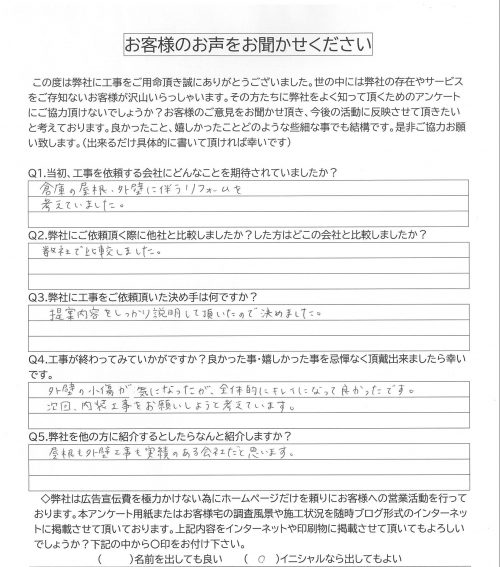 お客様のお声をお聞かせください
この度は弊社に工事をご用命頂き誠にありがとうございました。世の中には弊社の存在やサービス
をご存知ないお客様が沢山いらっしゃいます。その方たちに弊社をよく知って頂くためのアンケート
にご協力頂けないでしょうか？お客様のご意見をお聞かせ頂き、今後の活動に反映させて頂きたい
と考えております。良かったこと、嬉しかったことどのような些細な事でも結構です。是非ご協力お願
い致します。（出来るだけ具体的に書いて頂ければ幸いです）
Q1.当初、工事を依頼する会社にどんなことを期待されていましたか？
倉庫の屋根・外壁に伴うリフォームを
考えていました。
Q2.弊社にご依頼頂く際に他社と比較しましたか？した方はどこの会社と比較しましたか？
数社で比較しました。
Q3.弊社に工事をご依頼頂いた決め手は何ですか？
提案内容をしっかり説明して頂いたので決めました。
Q4.工事が終わってみていかがですか？良かった事・嬉しかった事を忌憚なく頂戴出来ましたら幸い
です。
外壁の小傷が気になったが、全体的にキレイになって良かったです。
次回、内装工事をお願いしようと考えています。
Q5.弊社を他の方に紹介するとしたらなんと紹介しますか？
屋根も外壁工事も実績のある会社だと思います。
◇弊社は広告宣伝費を極力かけない為にホームページだけを頼りにお客様への営業活動を行って
おります。本アンケート用紙またはお客様宅の調査風景や施工状況を随時ブログ形式のインターネッ
トに掲載させて頂いております。上記内容をインターネットや印刷物に掲載させて頂いてもよろしい
でしょうか？下記の中から〇印をお付け下さい。
（　　）名前を出しても良い　（　○　）イニシャルなら出してもよい